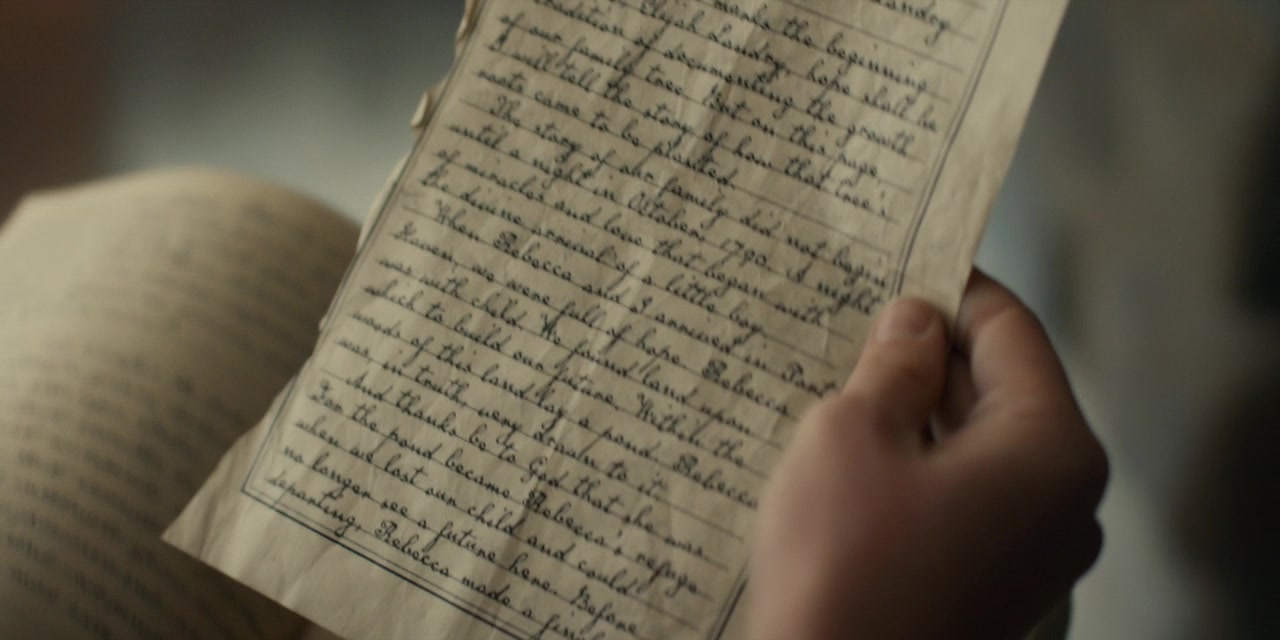 Landry
made the beginning
Elijah Landry, hope shall be
tradition of documenting the growth
of our family tree. But on this page
I will tell the story of how that tree's
roots came to be planted.
The story of our family did not begin
until a night in October, 1790. A night
of miracles and love that began with
the divine arrival of a little boy.
When Rebecca and I arrived in Port
Haven we were full of hope. Rebecca
was with child. We found land upon
which to build our future. Within the
woods of this land lay a pond. Rebecca
was in truth very drawn to it.
And thanks be to God that she was
For the pond became Rebecca's refuge
when we lost our child and could
no longer see a future here. Before
departing, Rebecca made a final